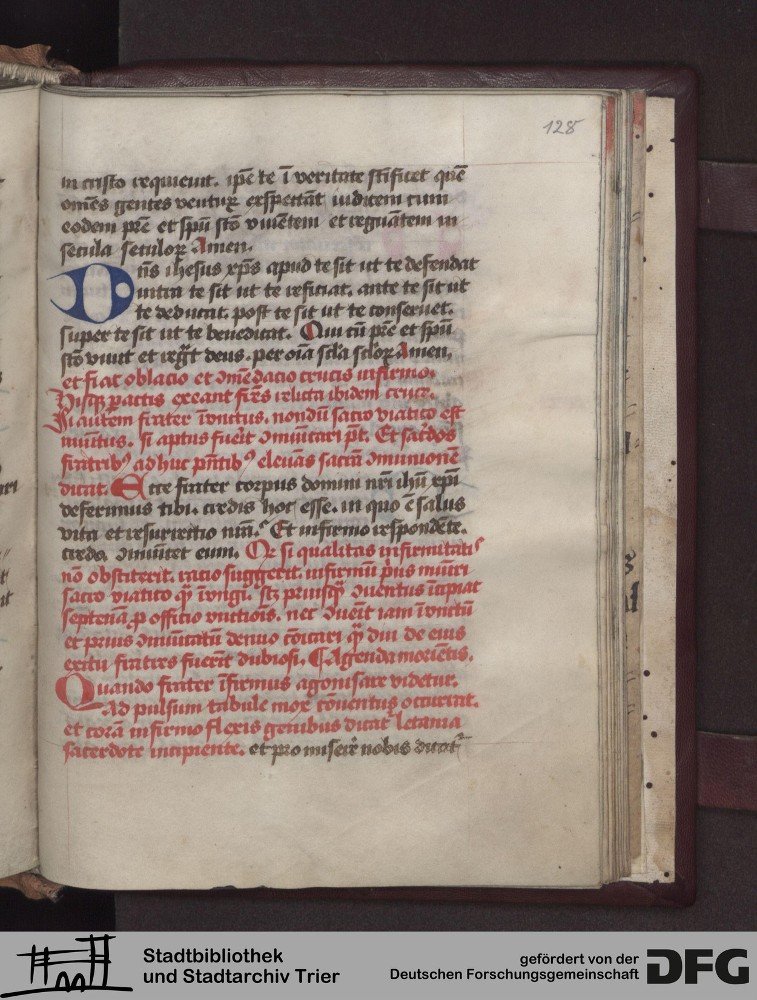 128
in cristo requieuit. ip̄e te ī veritate sc̄ificet quē
om̄es gentes venturꝫ exspectāt iudicem cum
eodem pr̄e et sp̄u sc̄o viuētem et regnātem in
secula seculoꝝ Amen.
Dn̄s ihesus xp̄s apud te sit ut te defendat
intra te sit ut te reficiat. ante te sit ut
te deducat. post te sit ut te conseruet.
super te sit ut te benedicat. Qui cū pr̄e et sp̄u
sc̄o viuit et regn̄t deus. per oīa sc̄la sc̄loꝝ Amen.
et fiat oblacio et ꝯmēdacio crucis infirmo.
Hisqꝫ ꝑactis exeant fr̄es relicta ibidem cruce.
Si autem frater īvnctus. nondū sacro viatico est
munitus. si aptus fuerit ꝯmūicari p̄t. Et sacerdos
fratribꝰ adhuc pn̄tibꝰ eleuās sacrā ꝯmunionē
dicat. Ecce frater corpus domini nr̄i ihū xp̄i
deferimus tibi. credis hoc esse. in quo ē salus
vita et resurrectio nr̄a. Et infirmo respondēte.
credo. ꝯmūicet eum. Qr si qualitas infirmitatis
nō obstiterit. racio suggerit. infirmū pͥus mūiri
sacro viatico qͣ̄ īungi. sꝫ priusqͣ̄ ꝯuentus īcipiat
septenā ꝓ officio vnctiōis. nec ꝯueīt iam īvnctū
et prius ꝯmūicatū denuo cōicari qͣ̄diu de eius
exitu fratres fuerīt dubiosi. ¶ Agenda moriētis.
Quando frater īfirmus agonisare videtur.
Ad pulsum tabule mox cōuentus occurrat.
et corā infirmo flexis genibus dicat letania
sacerdote incipiente. et pro miserere nobis dicat᷑
Stadtbibliothek
und Stadtarchiv Trier
gefördert von der
Deutschen Forschungsgemeinschaft DFG